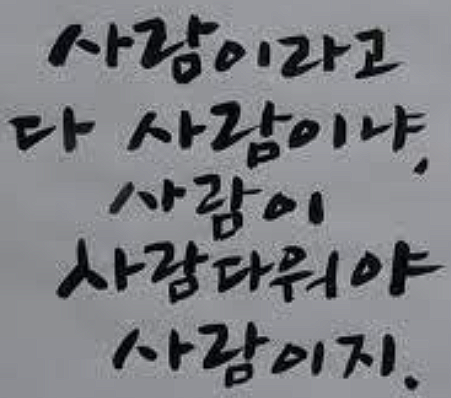 사람이라고
다 사람이냐,
사람이
사람다워야
사람이지.